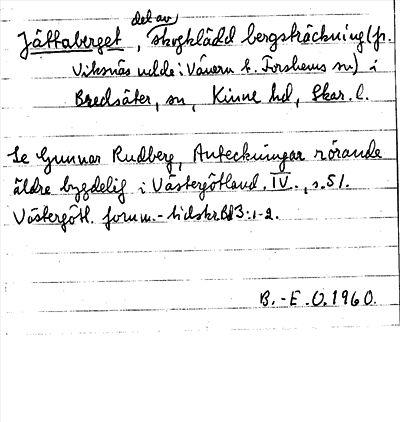 Jättaberget, del av skogklädd bergsträckning (fr.
Viksnäs udde i Vänern t. Forshems sn) i
Bredsäter, sn, Kinne hd, Skar. l.
Se Gunnar Rudberg, Anteckningar rörande
äldre bygdelig i Västergötland. IV., s. 51.
Västergötl. fornm.-tidskr. Bd 3:1-2.
B.-E. O. 1960.